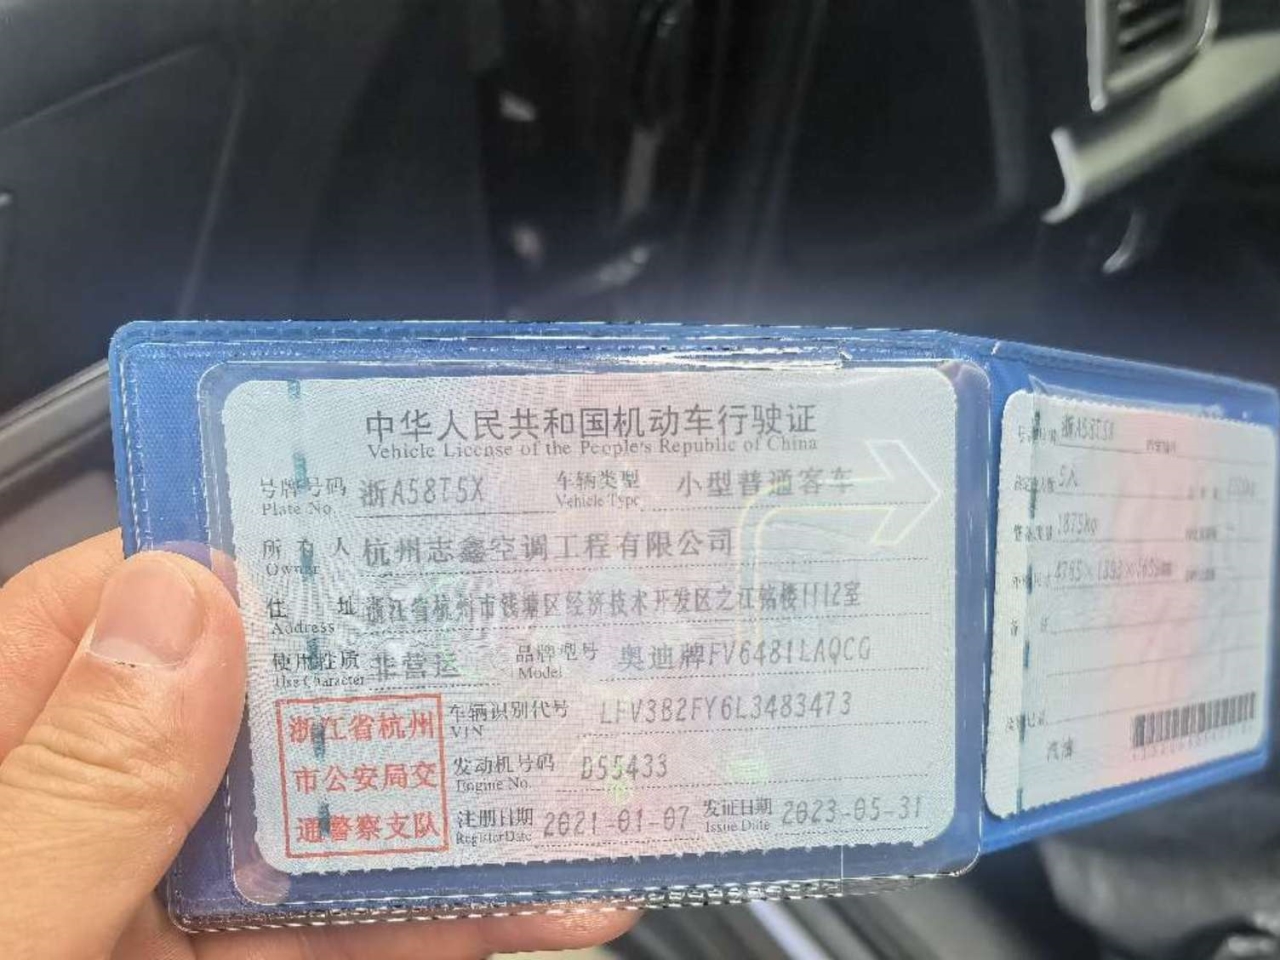 中华人民共和国机动车行驶证
Vehicle License of the People's Republic of China
号牌号码 浙A58T5X 车辆类型 小型普通客车
Plate No. Vehicle Type
所有人 杭州志鑫空调工程有限公司
Owner
住址 浙江省杭州市钱塘区经济技术开发区之江铭楼1112室
Address
使用性质 非营运 品牌型号 奥迪牌FV6481LAQCG
Use Character Model
车辆识别代号 LFV3B2FY6L3483473
VIN
发动机号码 D55433
Engine No.
注册日期 2021-01-07 发证日期 2023-05-31
Register Date Issue Date
浙江省杭州
市公安局交
通警察支队
浙A58T5X
5人
1875kg
汽油